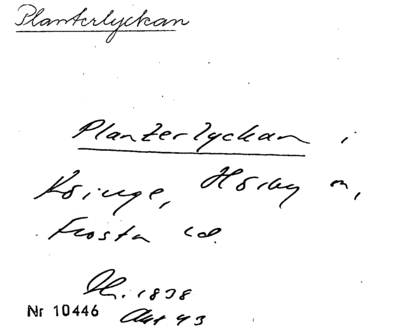 Planterlyckan
Planterlyckan i
Hörby
Frosta
1838
Nr 10446
Akt 43